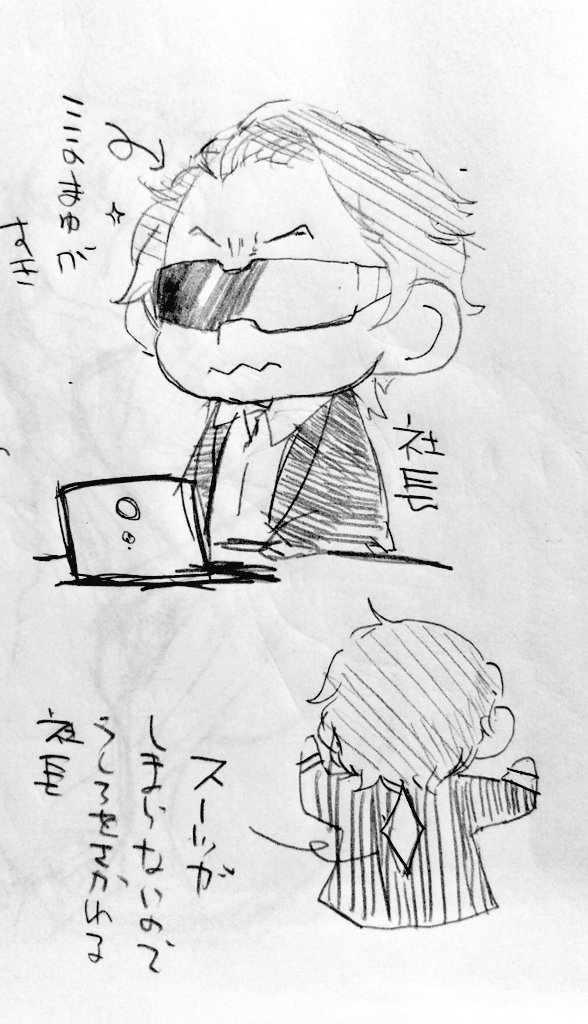 ここのまゆが
すき
社長
スーツが
しまらないので
うしろをさかれる
社長